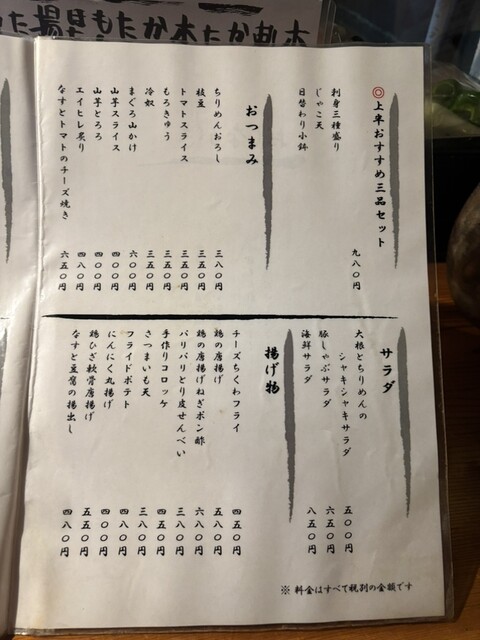 ◎上半おすすめ三品セット
刺身三種盛り
じゃこ天
日替わり小鉢
九八〇円
おつまみ
ちりめんおろし 三八〇円
枝豆 三五〇円
トマトスライス 三五〇円
もろきゅう 三五〇円
冷奴 三五〇円
まぐろ山かけ 六〇〇円
山芋スライス 四〇〇円
山芋とろろ 四〇〇円
エイヒレ炙り 四八〇円
なすとトマトのチーズ焼き 六五〇円
サラダ
大根とちりめんの
シャキシャキサラダ 五〇〇円
豚しゃぶサラダ 六五〇円
海鮮サラダ 八五〇円
揚げ物
チーズちくわフライ 四五〇円
鶏の唐揚げ 五八〇円
鶏の唐揚げねぎポン酢 六八〇円
パリパリとり皮せんべい 三八〇円
手作りコロッケ 四五〇円
さつまいも天 三八〇円
フライドポテト 四八〇円
にんにく丸揚げ 四〇〇円
鶏ひざ軟骨唐揚げ 五五〇円
なすと豆腐の揚出し 四八〇円
※ 料金はすべて税別の金額です